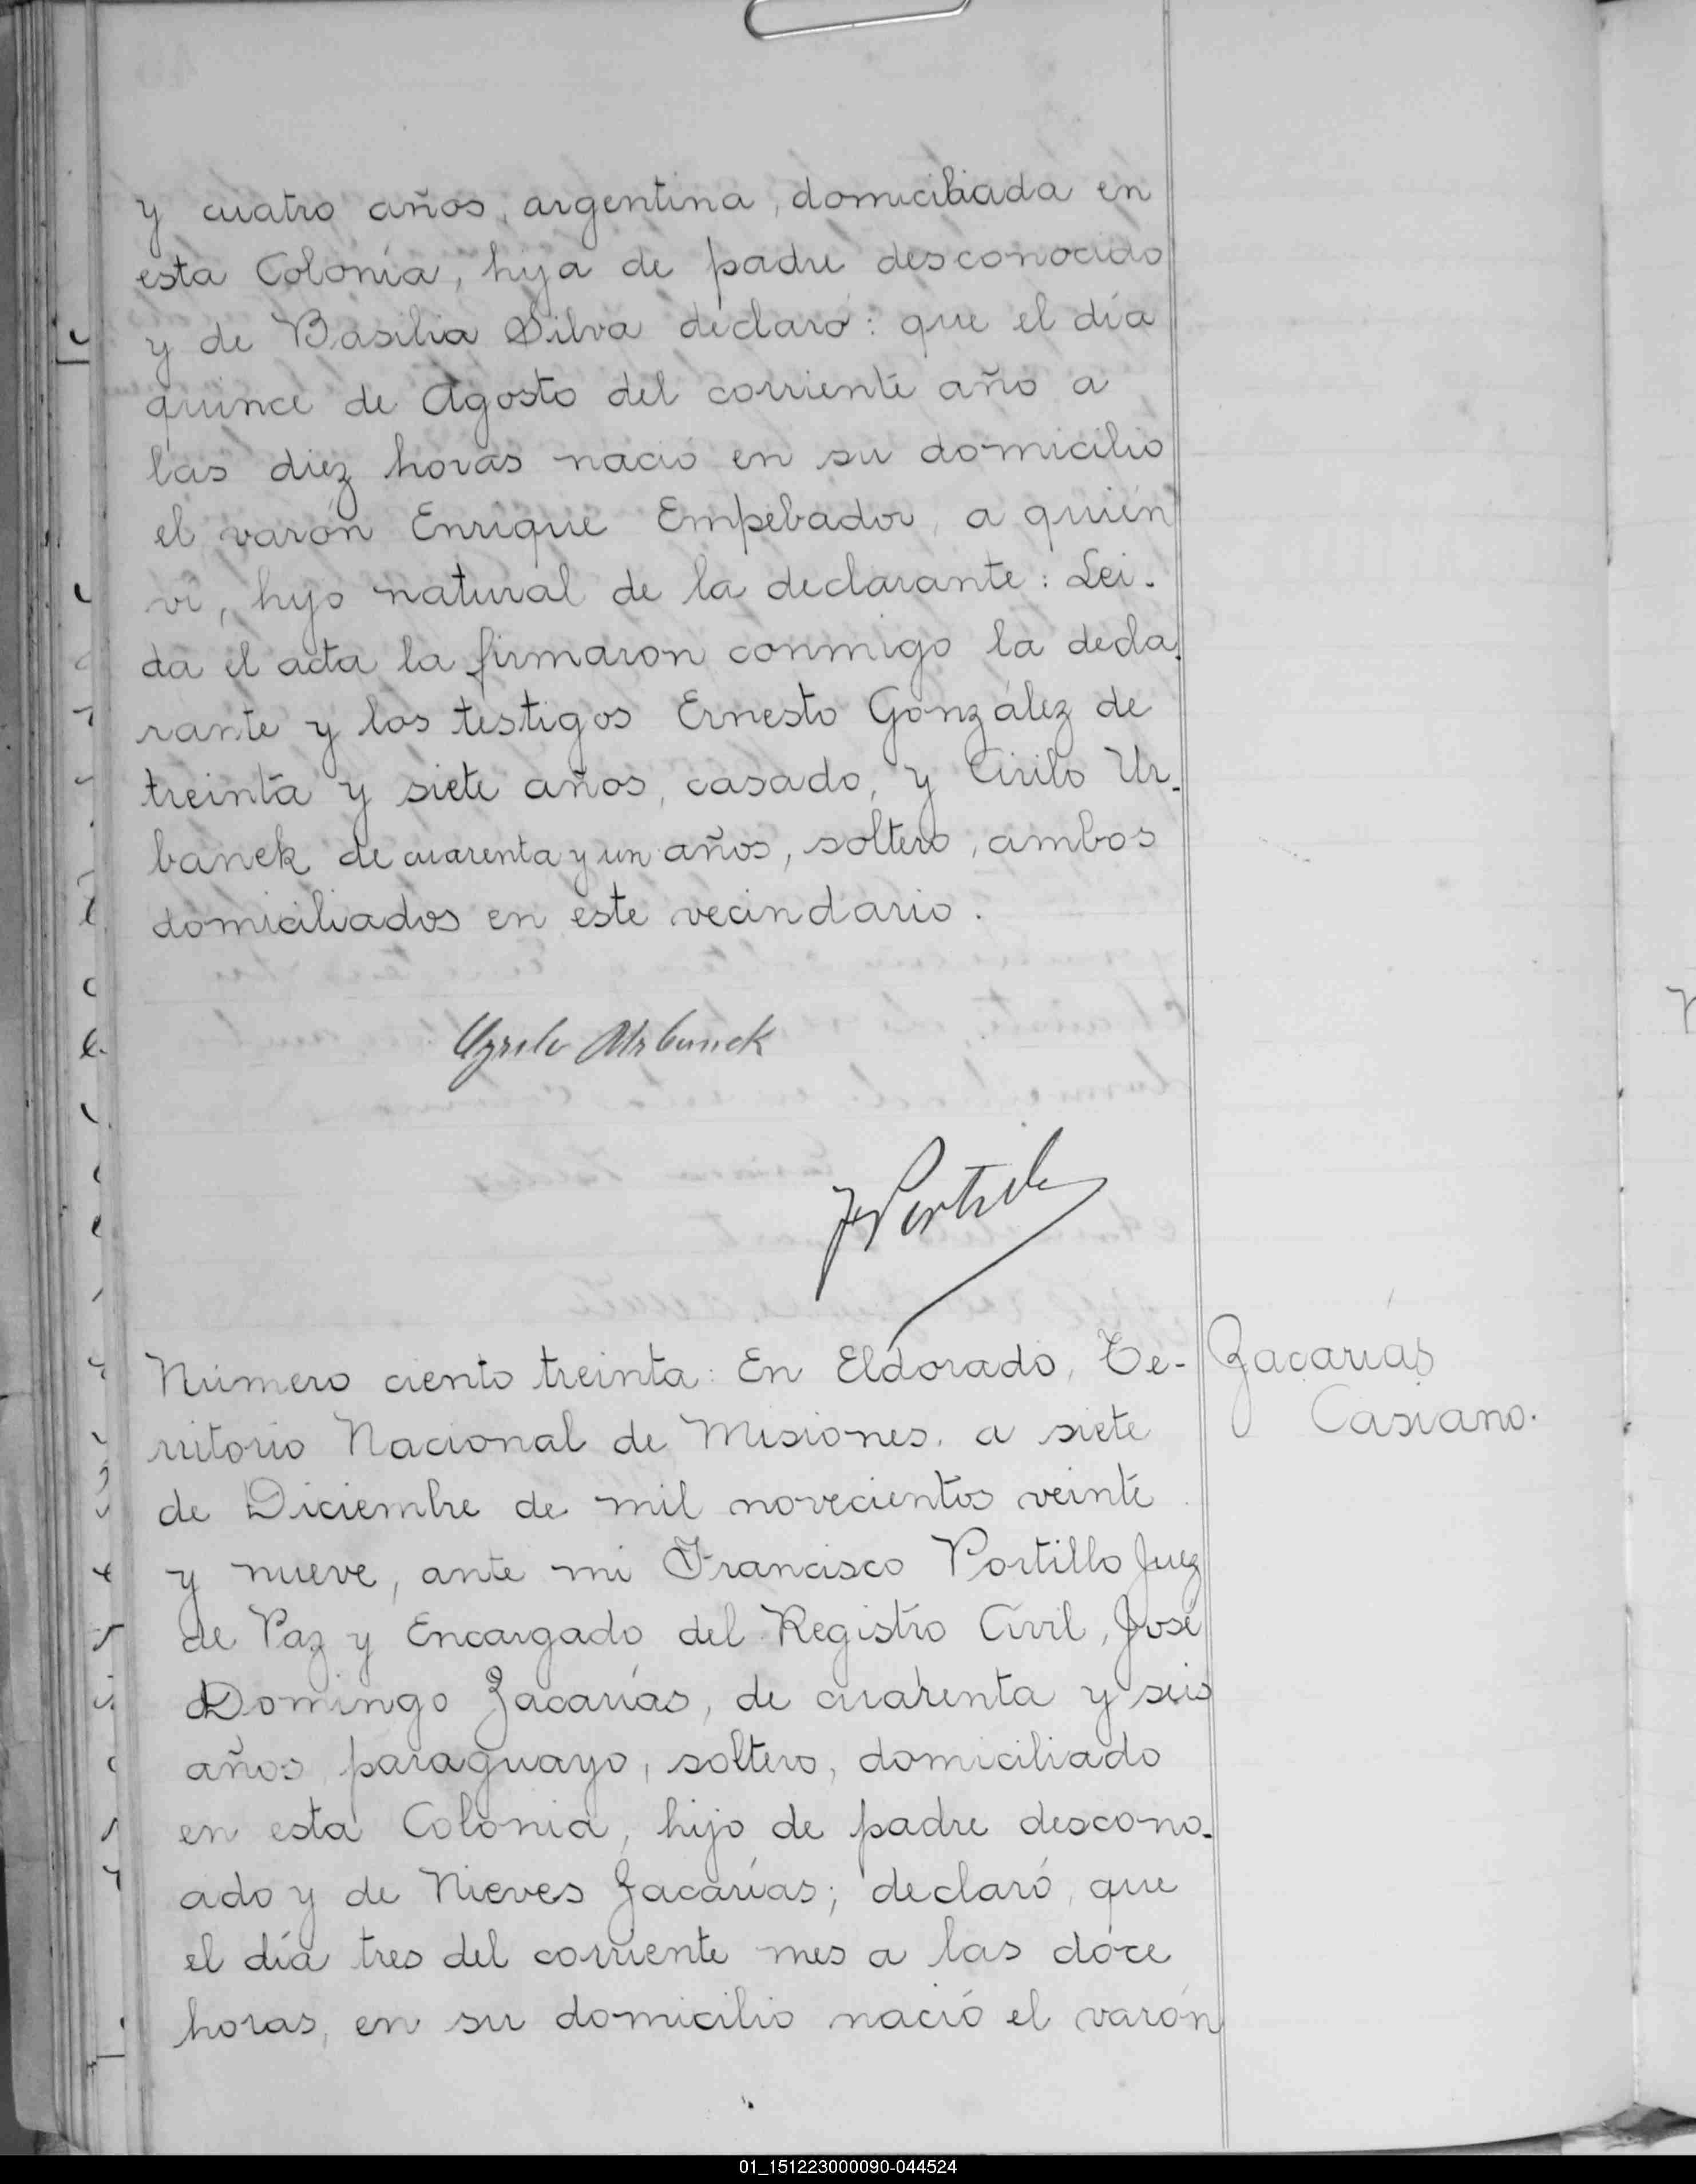 y cuatro años, argentina, domiciliada en
esta Colonia, hija de padre desconocido
y de Basilia Silva declaró: que el día
quince de Agosto del corriente año a
las diez horas nació en su domicilio
el varón Enrique Empebador, a quién
ví, hijo natural de la declarante: Lei-
da el acta la firmaron conmigo la decla-
rante y los testigos Ernesto González de
treinta y siete años, casado, y Cirilo Ur-
banek de cuarenta y un años, soltero, ambos
domiciliados en este vecindario.
Cyrilo Urbanek
Número ciento treinta: En Eldorado, Te-
rritorio Nacional de Misiones, a siete
de Diciembre de mil novecientos veinte
y nueve, ante mi Francisco Portillo Juez
de Paz y Encargado del Registro Civil, José
Domingo Zacarías, de cuarenta y seis
años, paraguayo, soltero, domiciliado
en esta Colonia, hijo de padre descono-
cido y de Nieves Zacarías; declaró, que
el día tres del corriente mes a las doce
horas, en su domicilio nació el varón
Zacarías
Casiano.
01_151223000090-044524